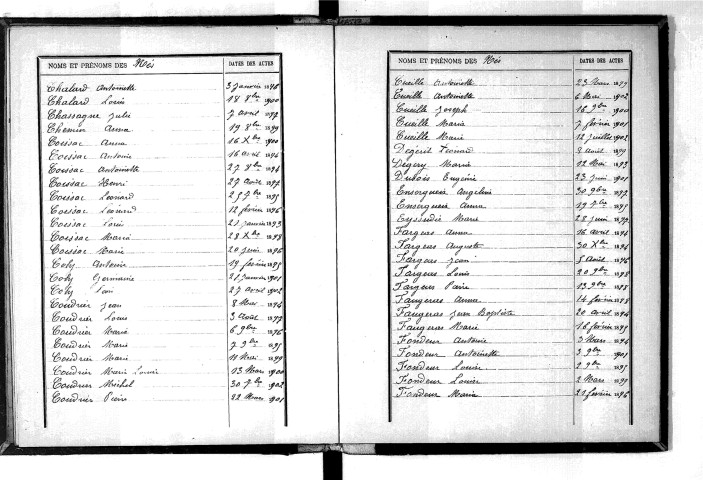 NOMS ET PRÉNOMS DES Nés DATES DES ACTES
Chalard Antoinette 3 janvier 1896
Chalard Louis 18 8bre 1900
Chassagne Jules 7 avril
Chemin Anna 19 8bre 1899
Coissac Anna 16 Xbre 1900
Coissac Antoine 16 avril 1896
Coissac Antoinette 27 8bre
Coissac Henri 27 avril
Coissac Léonard 1895
Coissac Léonard 12 février 1896
Coissac Louis 21 janvier 1893
Coissac Maria 28 Xbre
Coissac Marie 20 juin 1896
Coly Antoine 19 février
Coly Germaine 21 janvier 1901
Coly 27 avril 1902
Coudrier Jean 8 Mai
Coudrier Louis 3 Août
Coudrier Marie 6 9bre 1896
Coudrier Marie 7 9bre
Coudrier Marie 11 Mai 1899
Coudrier Marie Louise 13 Mars 1900
Coudrier Michel 30 7bre 1902
Coudrier Pierre 22 Mars 1901
NOMS ET PRÉNOMS DES Nés DATES DES ACTES
Cueille Antoinette 23 Mars
Cueille Antoinette 6 Mai 1902
Cueille Joseph 16 9bre 1900
Cueille Marie 7 février 1901
Cueille Marie 12 juillet 1902
Degeuil Léonard 8 Août 1899
Degery Marie 12 Mai 1893
Dubois Eugénie 23 juin 1901
Ensergueix Angeline 30 9bre
Ensergueix Anna 19 7bre
Eyssidie Marie 28 juin
Fargeas Anna 16 avril
Fargeas Auguste 30 Xbre
Fargeas Jean 5 avril 1896
Fargeas Louis 20 9bre
Fargeas Pierre 13 9bre
Faugeras Anna 14 février
Faugeras Jean Baptiste 20 avril
Faugeras Marie 16 février
Fondeur Antoine 3 Mars
Fondeur Antoinette 3 9bre 1901
Fondeur Louise 2 9bre
Fondeur Louise 2 Mars
Fondeur Maria 21 février 1896